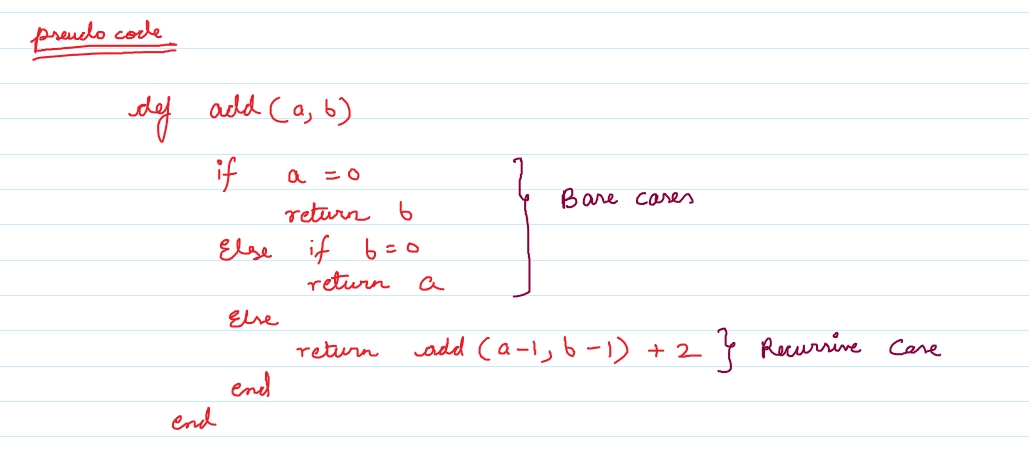 pseudo code
def add (a, b)
if a = 0
return b
Base cases
Else if b = 0
return a
Else
return add (a-1, b-1) + 2 } Recursive Case
end
end